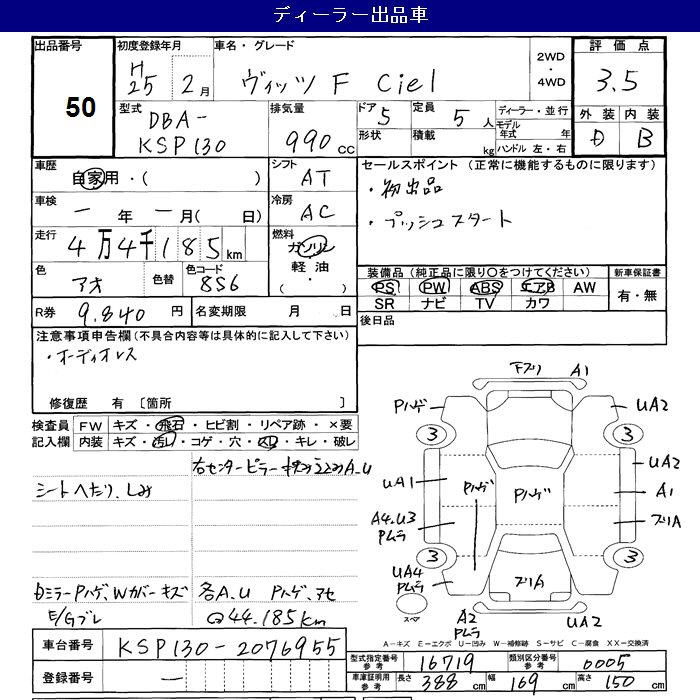 ディーラー出品車
出品番号 初度登録年月 車名・グレード 評価点
50
H25 2月 ヴィッツ F Ciel 2WD・4WD 3.5
型式 排気量 ドア 5 定員 5人 ディーラー・並行 外装 内装
DBA-KSP130 990cc 形状 積載 kg モデル年式 年 D B
ハンドル 左・右
車歴 シフト セールスポイント (正常に機能するものに限ります)
自家用・( ) AT ・初出品
車検 冷房 ・プッシュスタート
ー年ー月( 日) AC
走行 燃料
4万4千185km ガソリン
色 色替 色コード 軽油 装備品(純正品に限り○をつけてください) 新車保証書
アオ 8S6 ・( ) PS PW ABS エアB AW 有・無
SR ナビ TV カワ
R券 9,840円 名変期限 月 日 後日品
注意事項申告欄(不具合内容等は具体的に記入して下さい)
・オーディオレス
修復歴 有 [箇所
検査員 FW キズ・飛石・ヒビ割・リペア跡・×要
記入欄 内装 キズ・汚レ・コゲ・穴・スレ・キレ・破レ
右センターピラー
A.U
シートへたり、しみ
ミラーPハゲ、Wカバーキズ 各A.U Pハゲ、アセ
E/Gブレ 44.185km
Fブリ A1
Pハゲ UA2
3 3
UA1 UA2
Pハゲ Pハゲ A1
A4.U3 ブリA
Pムラ
3 3
UA4
Pムラ ブリA
スペア A2 UA2
Pムラ
A-キズ E-エクボ U-凹み W-補修跡 S-サビ C-腐食 XX-交換済
車台番号 KSP130-2076955
登録番号 ー
型式指定番号 参考 16719 類別区分番号 参考 0005
車庫証明用 参考 長さ 388cm 幅 169cm 高さ 150cm